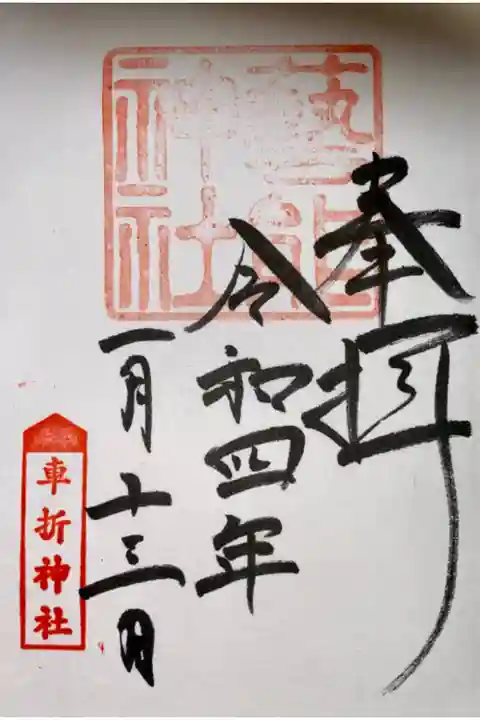 藝能神社
奉拝
令和四年
一月十三日
車折神社